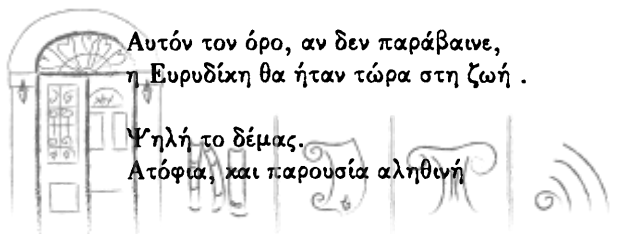 Αυτόν τον όρο, αν δεν παράβαινε,
η Ευρυδίκη θα ήταν τώρα στη ζωή .
Ψηλή το δέμας.
Ατόφια, και παρουσία αληθινή